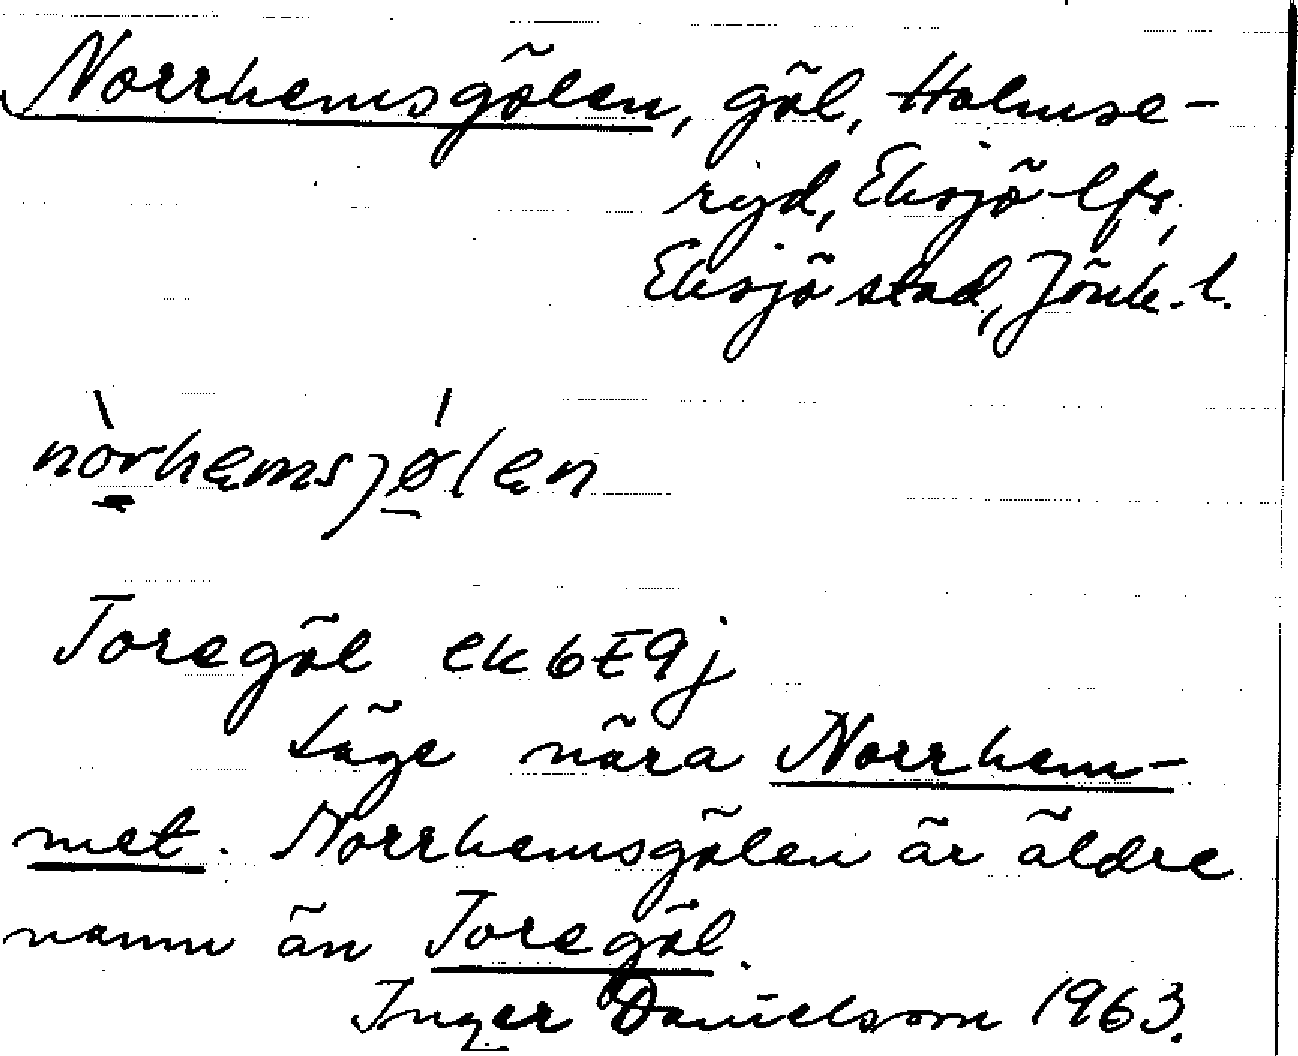 Norrhemsgölen, göl, Holmse-
ryd, Eksjö lfs,
Eksjö stad, Jönk. l.
nòrhemsjǿlen
Toregöl ek 6E9j
Läge nära Norrhem-
met. Norrhemsgölen är äldre
namn än Toregöl.
Inger Danielsson 1963.